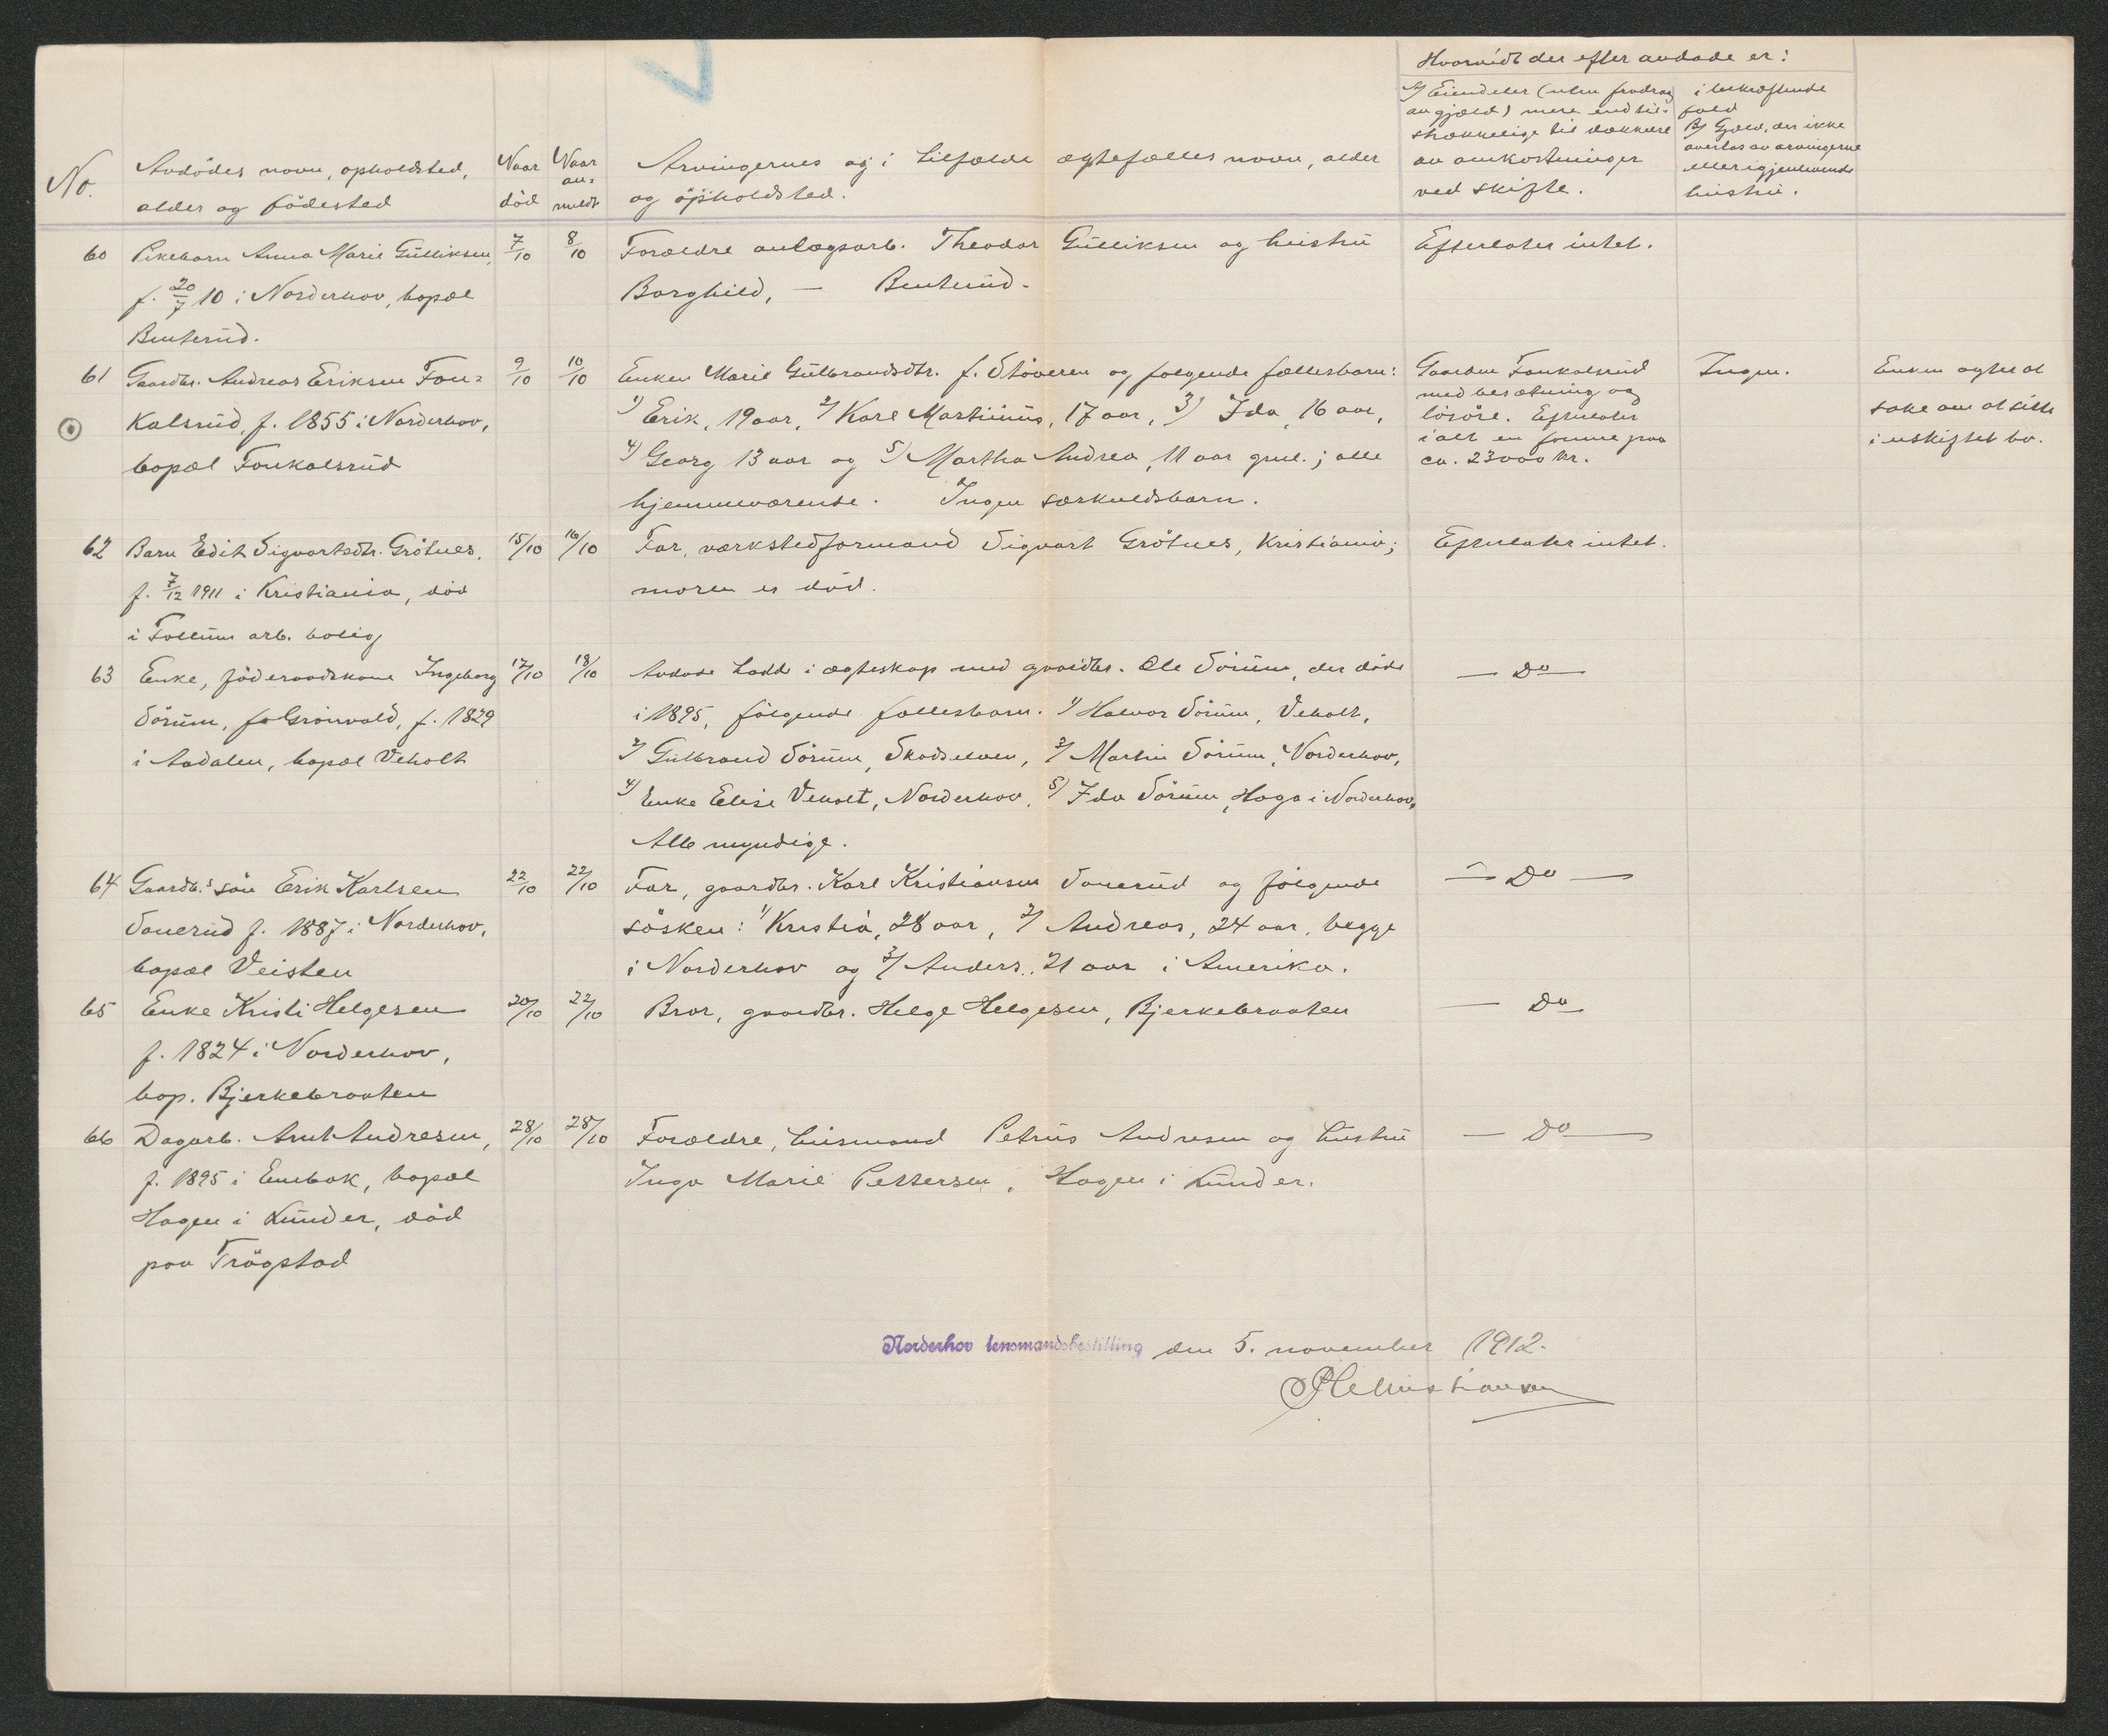 Hvorvidt der efter avdøde er:
No.
Avdödes navn, opholdsted,
alder og födested
Naar
död
Naar
an-
meldt
Arvingernes og i tilfælde ægtefælles navn, alder
og opholdsted.
A) Eiendeler (uten fradrag
av gjæld) mere end til-
strækkelige til dækkelse
av omkostninger
ved skifte.
i bekræftende
fald
B) Gjæld, der ikke
overtas av arvingerne
eller igjenlevende
hustru.
60 Pikebarn Anna Marie Gulliksen, 7/10 8/10 Forældre anlægsarb. Theodor Gulliksen og hustru Efterlater intet.
f. 20/7 10 i Norderhov, bopæl Borghild, — Benterud.
Benterud.
61 Gaardbr. Andreas Eriksen Fon- 9/10 10/10 Enken Marie Gulbrandsdtr. f. Stöveren og følgende fællesbarn: Gaarden Fonkalsrud Ingen. Enken agter at
kalsrud, f. 1855 i Norderhov, 1) Erik, 19 aar, 2) Karl Martinius, 17 aar, 3) Ida, 16 aar, med besætning og
lösöre. Efterlater søke om at sitte
bopæl Fonkalsrud 4) Georg 13 aar og 5) Martha Andrea, 11 aar gml.; alle ialt en formue paa
ca. 23000 kr. i uskiftet bo.
hjemmeværende. Ingen særkuldsbarn.
62 Barn Edith Sigvartsdtr. Grötnes, 15/10 16/10 Far, værkstedformand Sigvart Grötnes, Kristiania; Efterlater intet.
f. 7/12 1911 i Kristiania, död moren er död.
i Follum arb. bolig
63 Enke, föderaadskone Ingeborg 17/10 18/10 Avdøde hadde i ægteskap med gaardbr. Ole Sörum, der döde — Do —
Sörum, f. Grönvold, f. 1829 i 1895, følgende fællesbarn. 1) Halvor Sörum, Veholt,
i Aadalen, bopæl Veholt 2) Gulbrand Sörum, Skodselven, 3) Martin Sörum, Norderhov,
4) Enke Elise Veholt, Norderhov, 5) Ida Sörum, Haga i Norderhov,
Alle myndige.
64 Gaardb.s sön Erik Karlsen 22/10 22/10 Far, gaardbr. Karl Kristiansen Sonerud og følgende — Do —
Sonerud f. 1887 i Norderhov, sösken: 1) Kristia, 28 aar, 2) Andreas, 24 aar, begge
bopæl Veisten i Norderhov og 3) Anders, 21 aar i Amerika.
65 Enke Kristi Helgesen 20/10 22/10 Bror, gaardbr. Helge Helgesen, Bjerkebraaten — Do —
f. 1824 i Norderhov,
bop. Bjerkebraaten
66 Dagarb. Arnt Andresen, 28/10 28/10 Forældre, husmand Petrus Andresen og hustru — Do —
f. 1895 i Enebak, bopæl Inga Marie Pettersen, Hagen i Lunder.
Hagen i Lunder, död
paa Trögstad
Norderhov lensmandsbestilling den 5. november 1912.